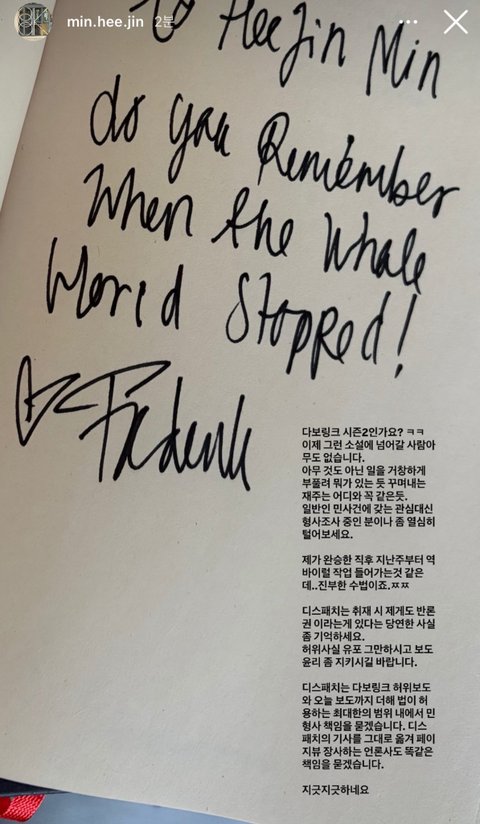 min.hee.jin 2분
to HeeJin Min
do you Remember
When the Whole
World Stopped!
다보링크 시즌2인가요? ㅋㅋ
이제 그런 소설에 넘어갈 사람아
무도 없습니다.
아무 것도 아닌 일을 거창하게
부풀려 뭐가 있는 듯 꾸며내는
재주는 어디와 꼭 같은듯.
일반인 민사건에 갖는 관심대신
형사조사 중인 분이나 좀 열심히
털어보세요.
제가 완승한 직후 지난주부터 역
바이럴 작업 들어가는것 같은
데..진부한 수법이죠.ㅉㅉ
디스패치는 취재 시 제게도 반론
권 이라는게 있다는 당연한 사실
좀 기억하세요.
허위사실 유포 그만하시고 보도
윤리 좀 지키시길 바랍니다.
디스패치는 다보링크 허위보도
와 오늘 보도까지 더해 법이 허
용하는 최대한의 범위 내에서 민
형사 책임을 묻겠습니다. 디스
패치의 기사를 그대로 옮겨 페이
지뷰 장사하는 언론사도 똑같은
책임을 묻겠습니다.
지긋지긋하네요